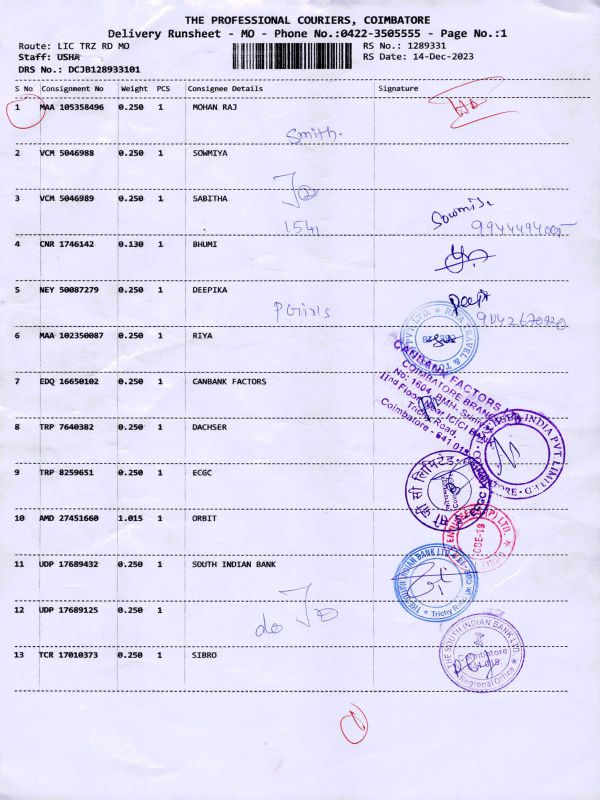 THE PROFESSIONAL COURIERS, COIMBATORE
Delivery Runsheet - MO - Phone No.:0422-3505555 - Page No.:1
Route: LIC TRZ RD MO RS No.: 1289331
Staff: USHA RS Date: 14-Dec-2023
DRS No.: DCJB128933101
S No Consignment No Weight PCS Consignee Details Signature
1 MAA 105358496 0.250 1 MOHAN RAJ
Smith.
2 VCM 5046988 0.250 1 SOWMIYA
3 VCM 5046989 0.250 1 SABITHA
1541
4 CNR 1746142 0.130 1 BHUMI
5 NEY 50087279 0.250 1 DEEPIKA
6 MAA 102350087 0.250 1 RIYA
7 EDQ 16650102 0.250 1 CANBANK FACTORS
CANBANK FACTORS
COIMBATORE BRANCH
No: 1604, BMH.
IInd Floor, ICICI BANK
Trichy Road,
Coimbatore - 641 018
8 TRP 7640382 0.250 1 DACHSER
INDIA PVT LIMITED
9 TRP 8259651 0.250 1 ECGC
10 AMD 27451660 1.015 1 ORBIT
11 UDP 17689432 0.250 1 SOUTH INDIAN BANK
12 UDP 17689125 0.250 1
do
13 TCR 17010373 0.250 1 SIBRO
THE SOUTH INDIAN BANK LTD.
Coimbatore
Regional Office